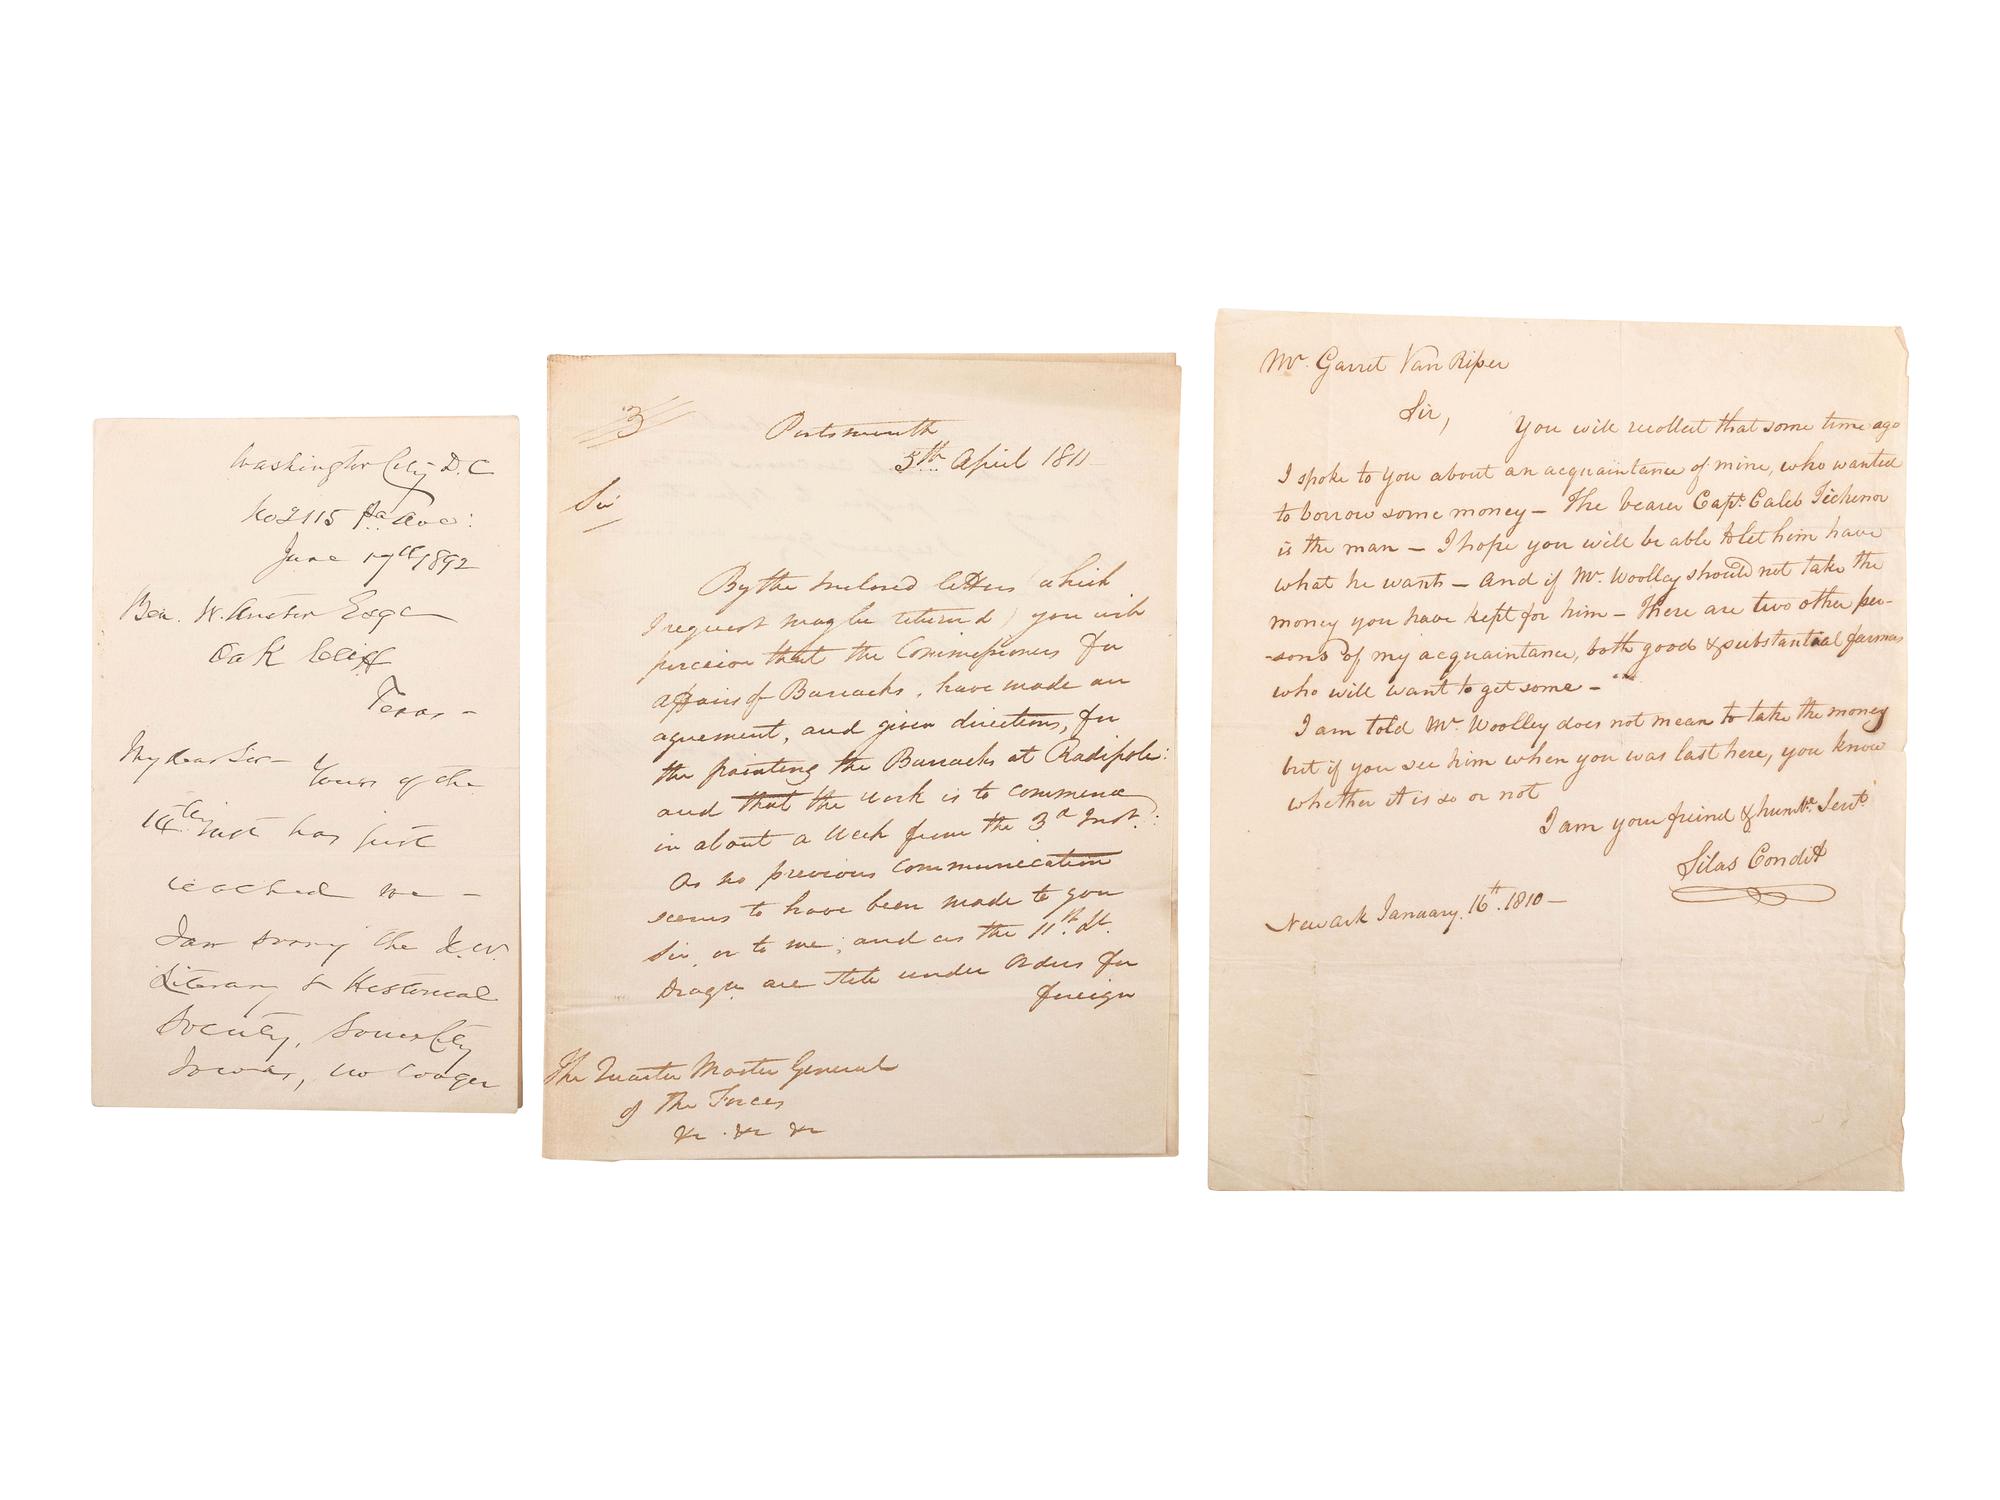 Washington City D.C
No 2115 Pa Ave:
June 17th 1892
Ben. W. Austin Esqr
Oak Cliff
Texas –
My dear Sir – Yours of the
14th inst has just
reached me –
I am sorry the N.W.
Literary & Historical
Society, Sioux City
Iowa, no longer
3
Portsmouth
5th April 1811
Sir
By the inclosed letters (which
I request may be returned) you will
perceive that the Commissioners for
affairs of Barracks, have made an
agreement, and given directions, for
the painting the Barracks at Radipole:
and that the work is to commence
in about a Week from the 3d Inst.:
As no previous communication
seems to have been made to you
Sir, or to me; and as the 11th Lt.
Dragns are still under Orders for
foreign
The Quarter Master General
of the Forces
&c . &c &c
Mr. Garret Van Riper
Sir, You will recollect that some time ago
I spoke to you about an acquaintance of mine, who wanted
to borrow some money – The bearer Capt. Caleb Tichenor
is the man – I hope you will be able to let him have
what he wants – And if Mr. Woolley should not take the
money you have kept for him – There are two other per-
-sons of my acquaintance, both good & substantial farmers
who will want to get some –
I am told Mr. Woolley does not mean to take the money
but if you see him when you was last here, you know
whether it is so or not
I am your freind & humble. Servt
Silas Condit
Newark January. 16th. 1810 –